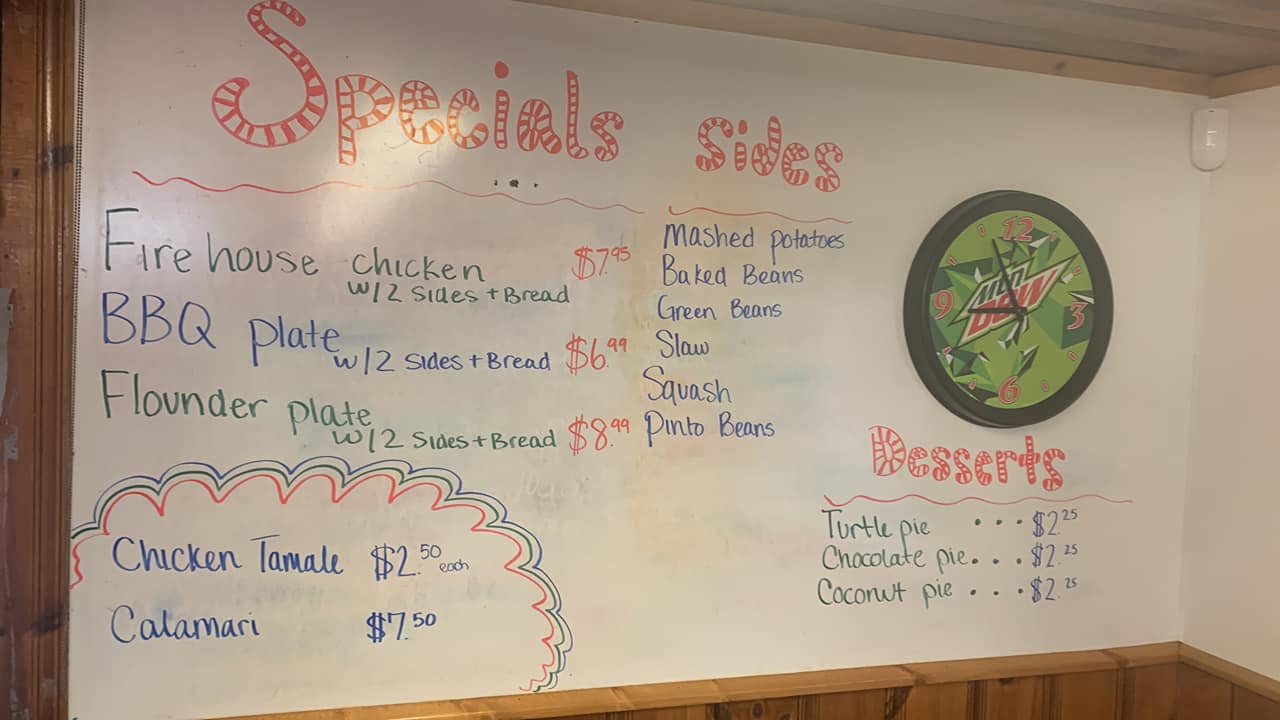 Specials
Fire house chicken $7.95
w/2 Sides + Bread
BBQ plate
w/2 Sides + Bread $6.99
Flounder plate
w/2 Sides + Bread $8.99
Chicken Tamale $2.50 each
Calamari $7.50
Sides
Mashed potatoes
Baked Beans
Green Beans
Slaw
Squash
Pinto Beans
12
9 3
6
MTN
DEW
Desserts
Turtle pie ... $2.25
Chocolate pie... $2.25
Coconut pie ... $2.25